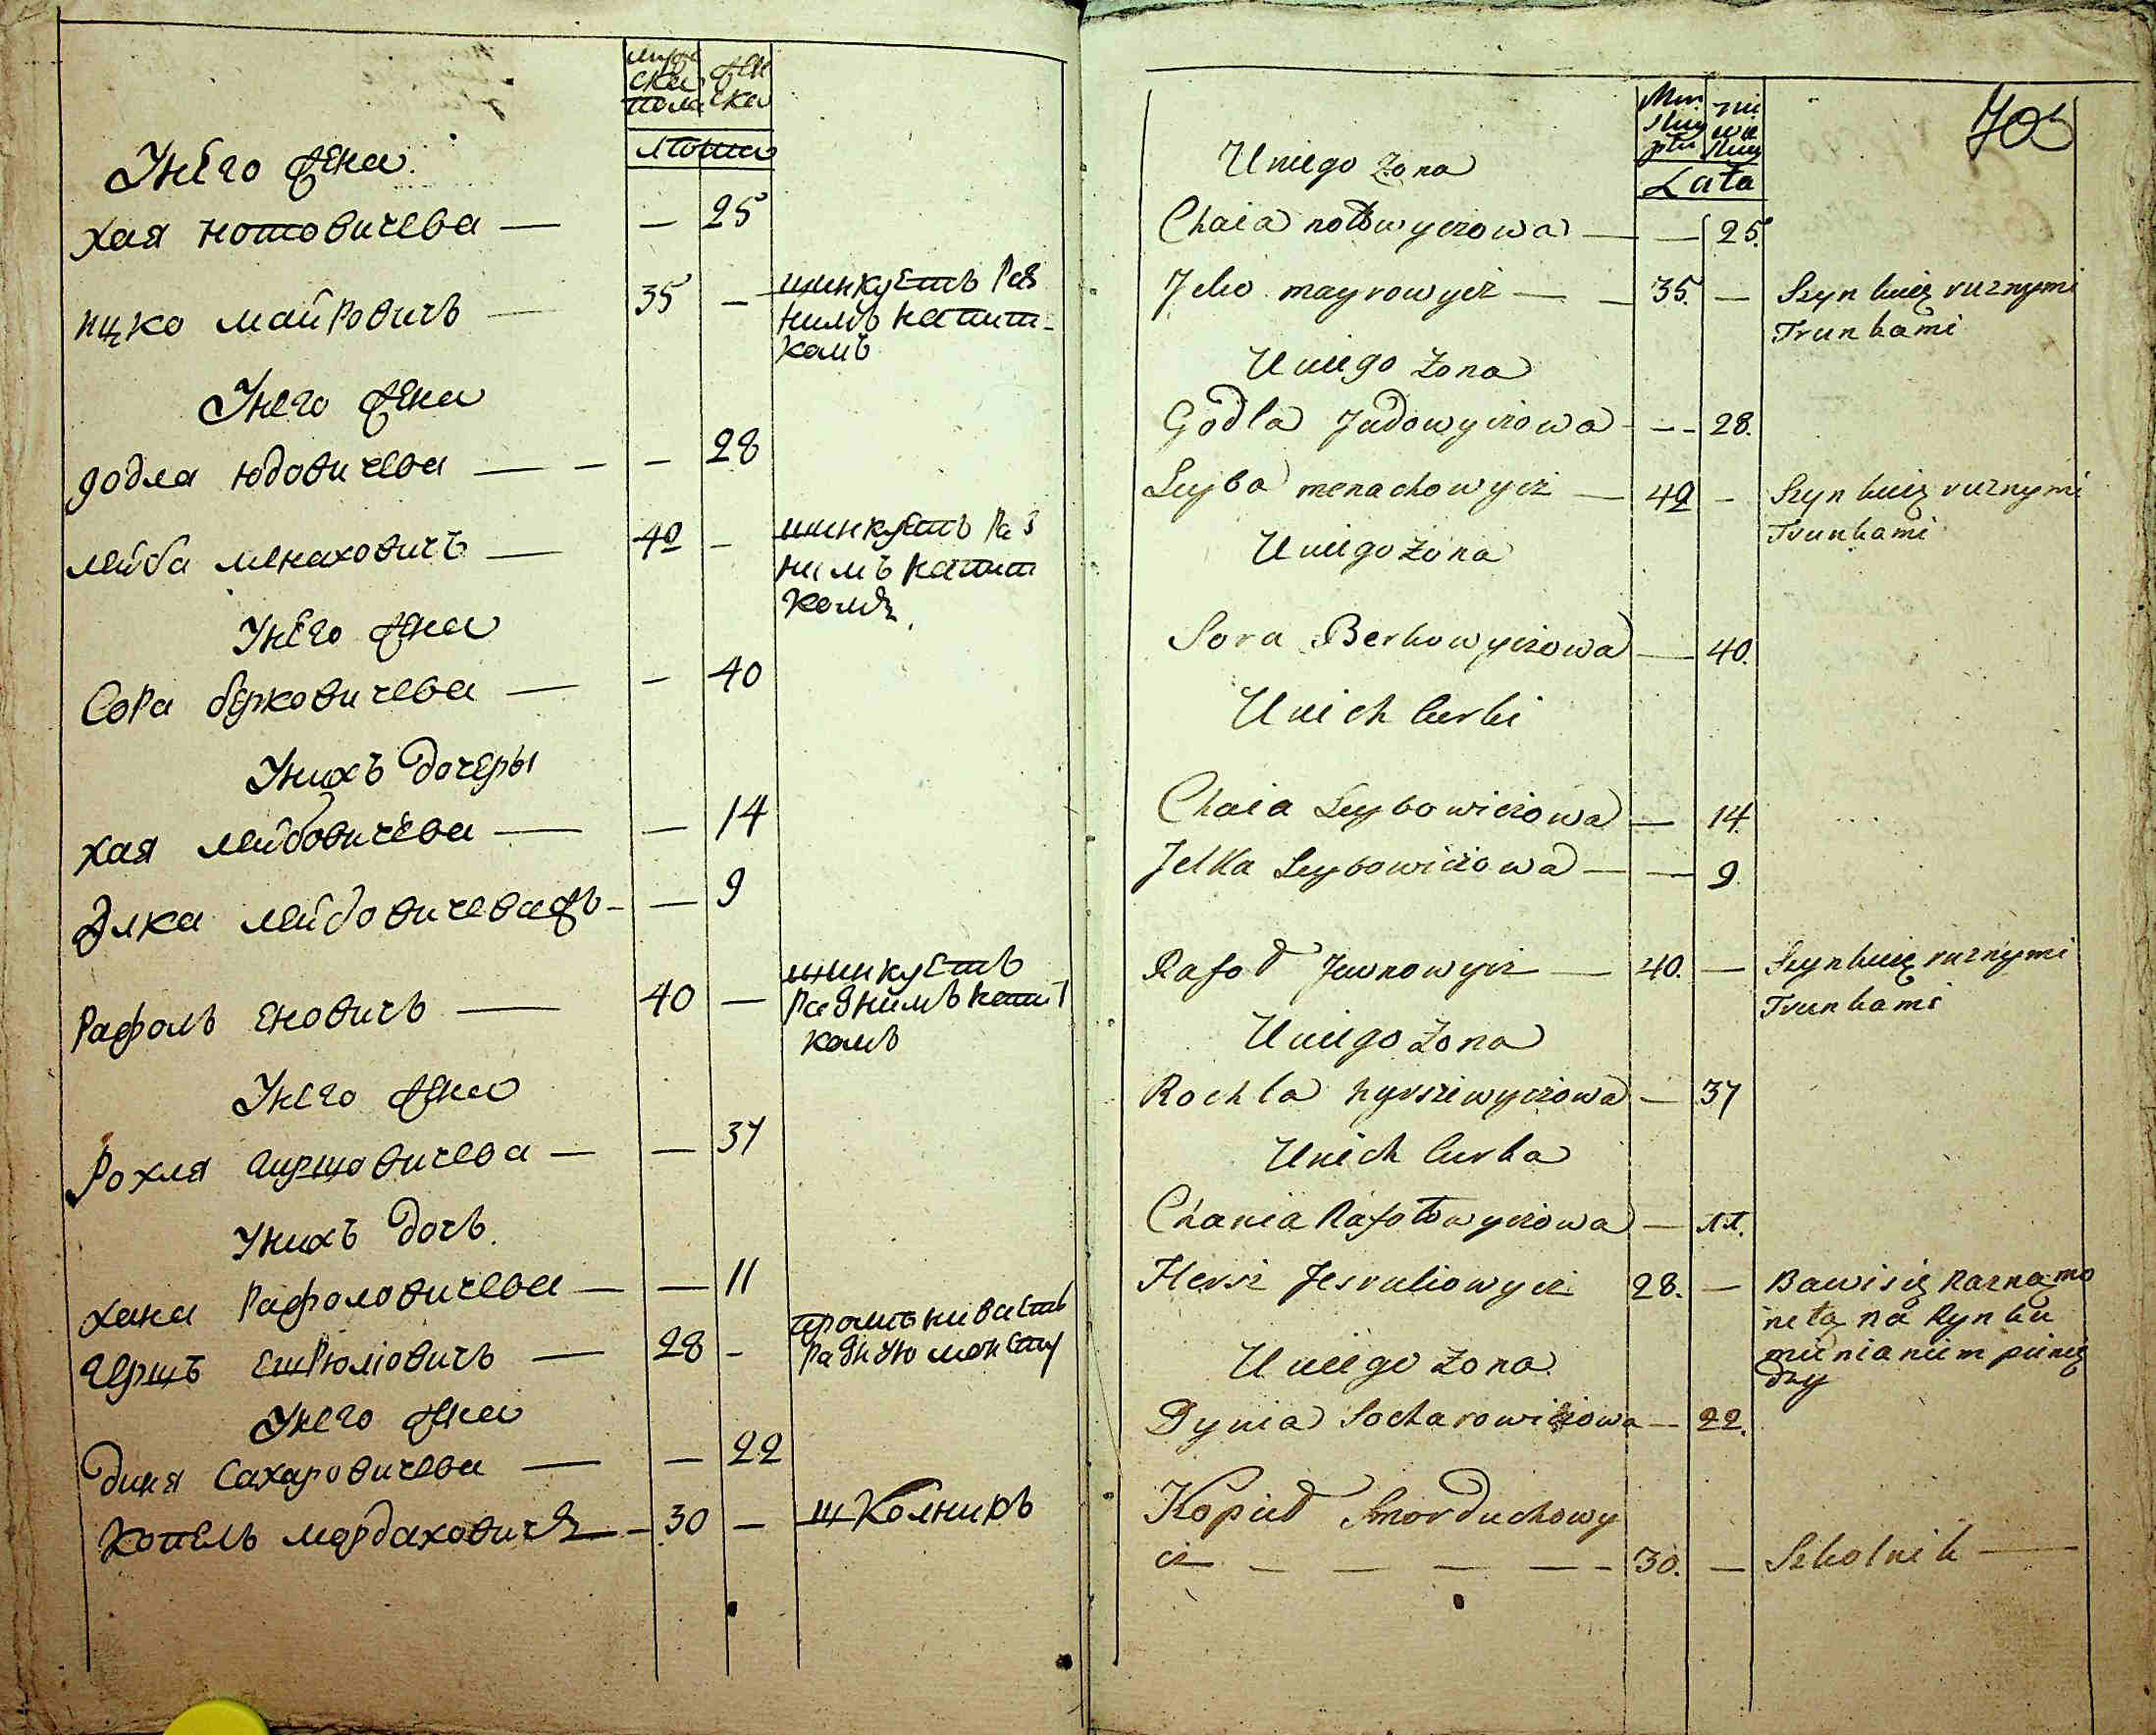 мужеска пола
женска
лѣта
У него жена
хая нотовичева — — 25
ицко майровичъ — 35 — шинкуетъ раз
нимъ напит-
комъ
У него жена
годла юдовичева — — — 28
лейба менаховичъ — 42 — шинкуетъ раз
нимъ напит
комъ
У него жена
Сора берковичева — — 40
У нихъ дочеры
хая лейбовичева — — 14
Элка лейбовичева — — 9
Рафолъ еновичъ — 40 — шинкуетъ
разнимъ напит
комъ
У него жена
Рохля гиршовичева — — 37
У нихъ дочь
хана Рафоловичева — — 11
гершъ ешрюліовичъ — 28 — промениваетъ
разную монету
У него жена
диня Сахаровичева — — 22
Копель мордаховичъ — 30 — школникъ
70
Lata
U niego żona
Chaia notowyczowa — — 25.
Jcko mayrowycz — — 35. — Szynkuię rużnymi
Trunkami
U niego żona
Godla Judowyczowa - — - 28.
Leyba menachowycz — 42 — Szynkuię rużnymi
Trunkami
U niego żona
Sora Berkowyczowa — 40.
U nich Curki
Chaia Leybowiczowa — 14.
Jelka Leybowiczowa — — 9.
Rafoł Jewnowycz — 40. — Szynkuię rużnymi
Trunkami
U niego żona
Rochla hyrszewyczowa — 37
U nich Curka
Chania Rafołowyczowa — 11.
Hersz Jesruliowycz 28. — Bawi się Razną mo
netą na Rynku
mienianiem pienię
dzy
U niego żona
Dynia Socharowiczowa — 22.
Kopiel Smorduchowy
cz — — — — — — 30. — Szkolnik —